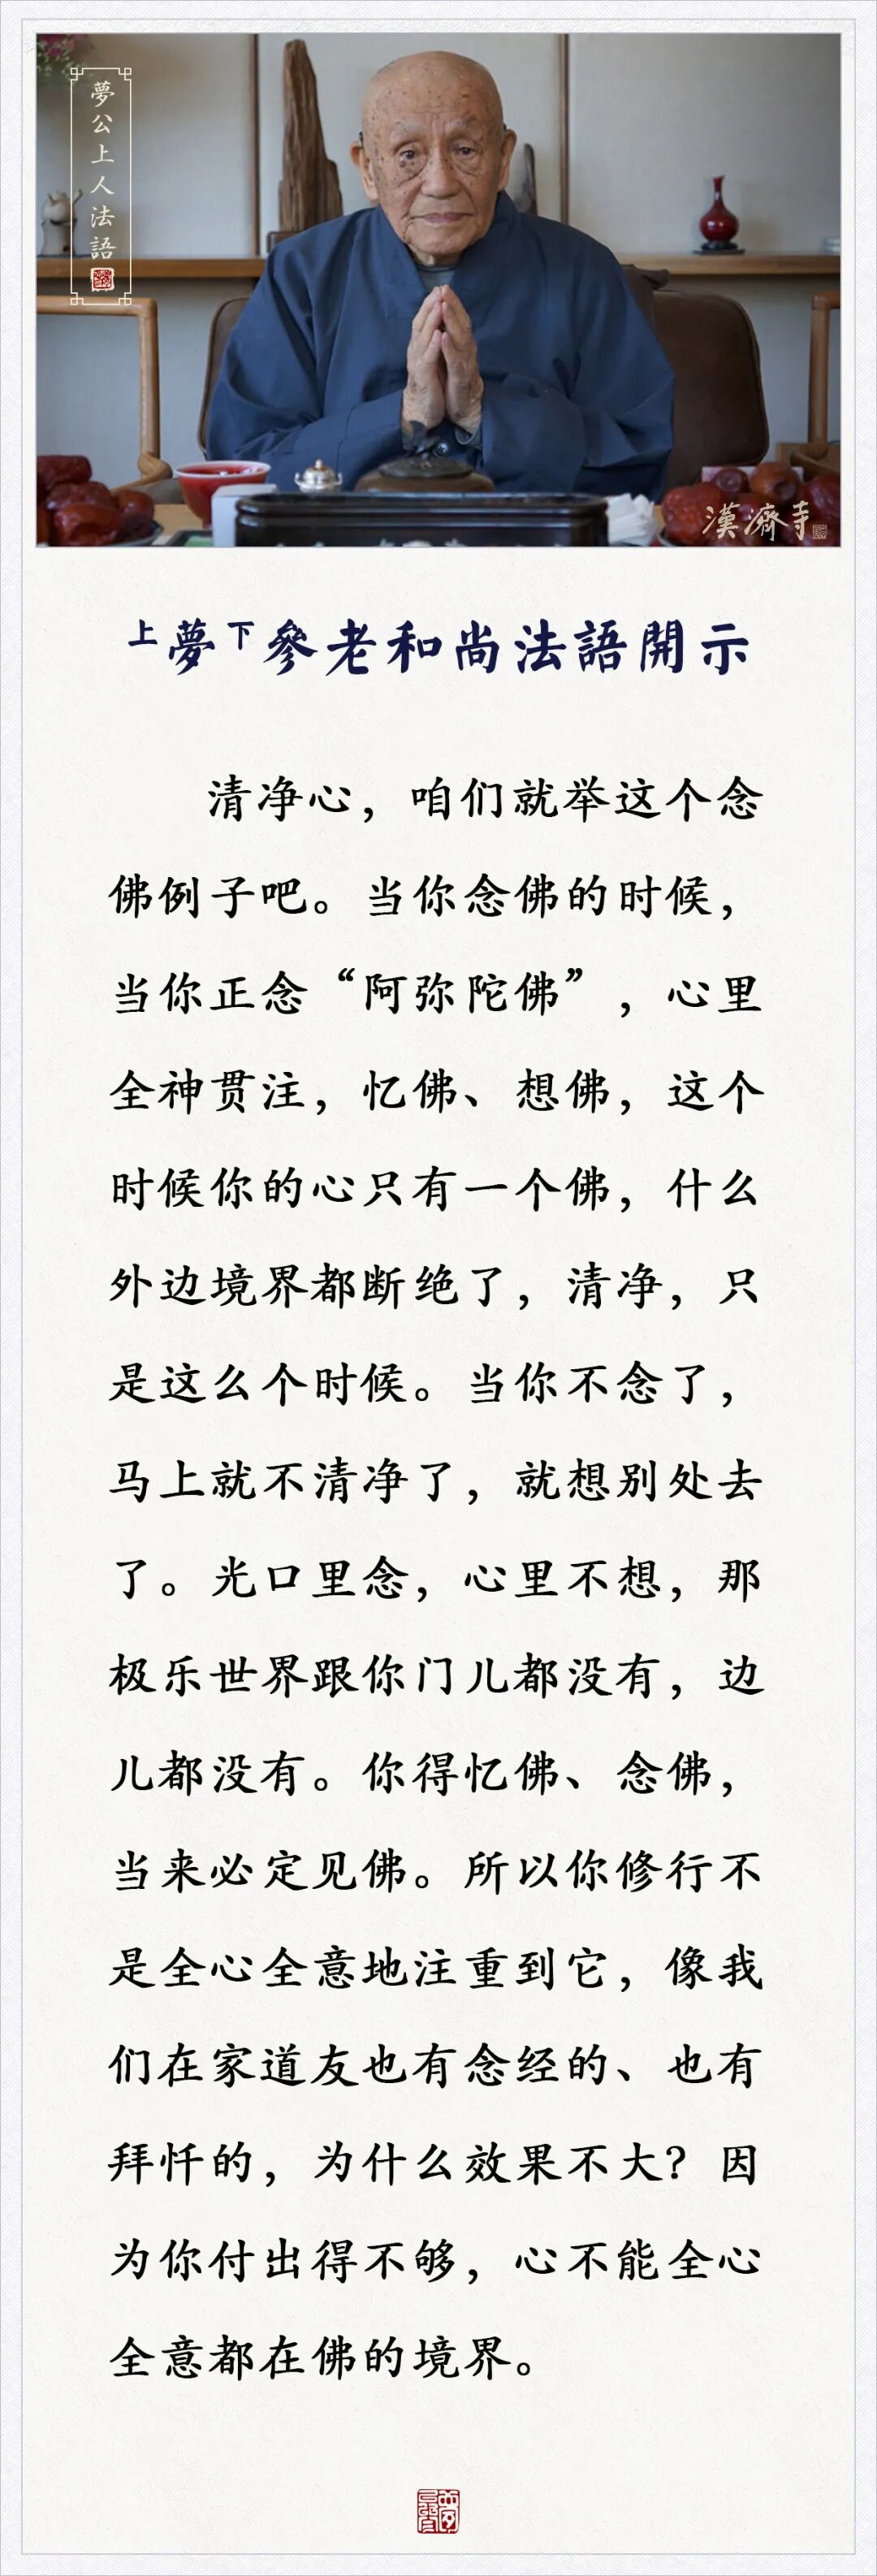 夢公上人法語
漢濟寺
上夢下參老和尚法語開示
清净心，咱们就举这个念
佛例子吧。当你念佛的时候，
当你正念“阿弥陀佛”，心里
全神贯注，忆佛、想佛，这个
时候你的心只有一个佛，什么
外边境界都断绝了，清净，只
是这么个时候。当你不念了，
马上就不清净了，就想别处去
了。光口里念，心里不想，那
极乐世界跟你门儿都没有，边
儿都没有。你得忆佛、念佛，
当来必定见佛。所以你修行不
是全心全意地注重到它，像我
们在家道友也有念经的、也有
拜忏的，为什么效果不大？因
为你付出得不够，心不能全心
全意都在佛的境界。